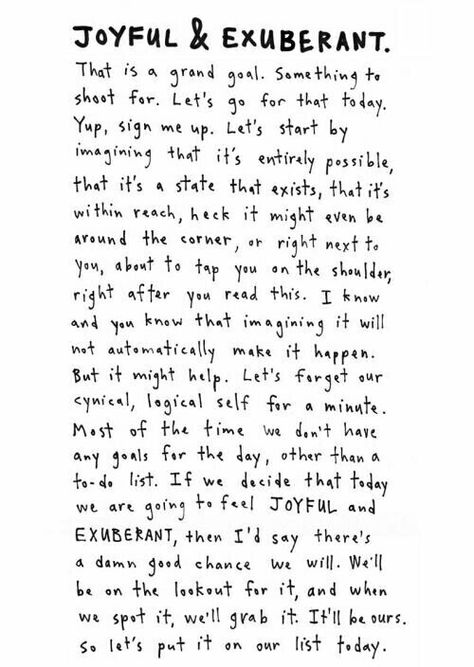 JOYFUL & EXUBERANT.
That is a grand goal. Something to
shoot for. Let's go for that today.
Yup, sign me up. Let's start by
imagining that it's entirely possible,
that it's a state that exists, that it's
within reach, heck it might even be
around the corner, or right next to
you, about to tap you on the shoulder,
right after you read this. I know
and you know that imagining it will
not automatically make it happen.
But it might help. Let's forget our
cynical, logical self for a minute.
Most of the time we don't have
any goals for the day, other than a
to-do list. If we decide that today
we are going to feel JOYFUL and
EXUBERANT, then I'd say there's
a damn good chance we will. We'll
be on the lookout for it, and when
we spot it, we'll grab it. It'll be ours.
So let's put it on our list today.